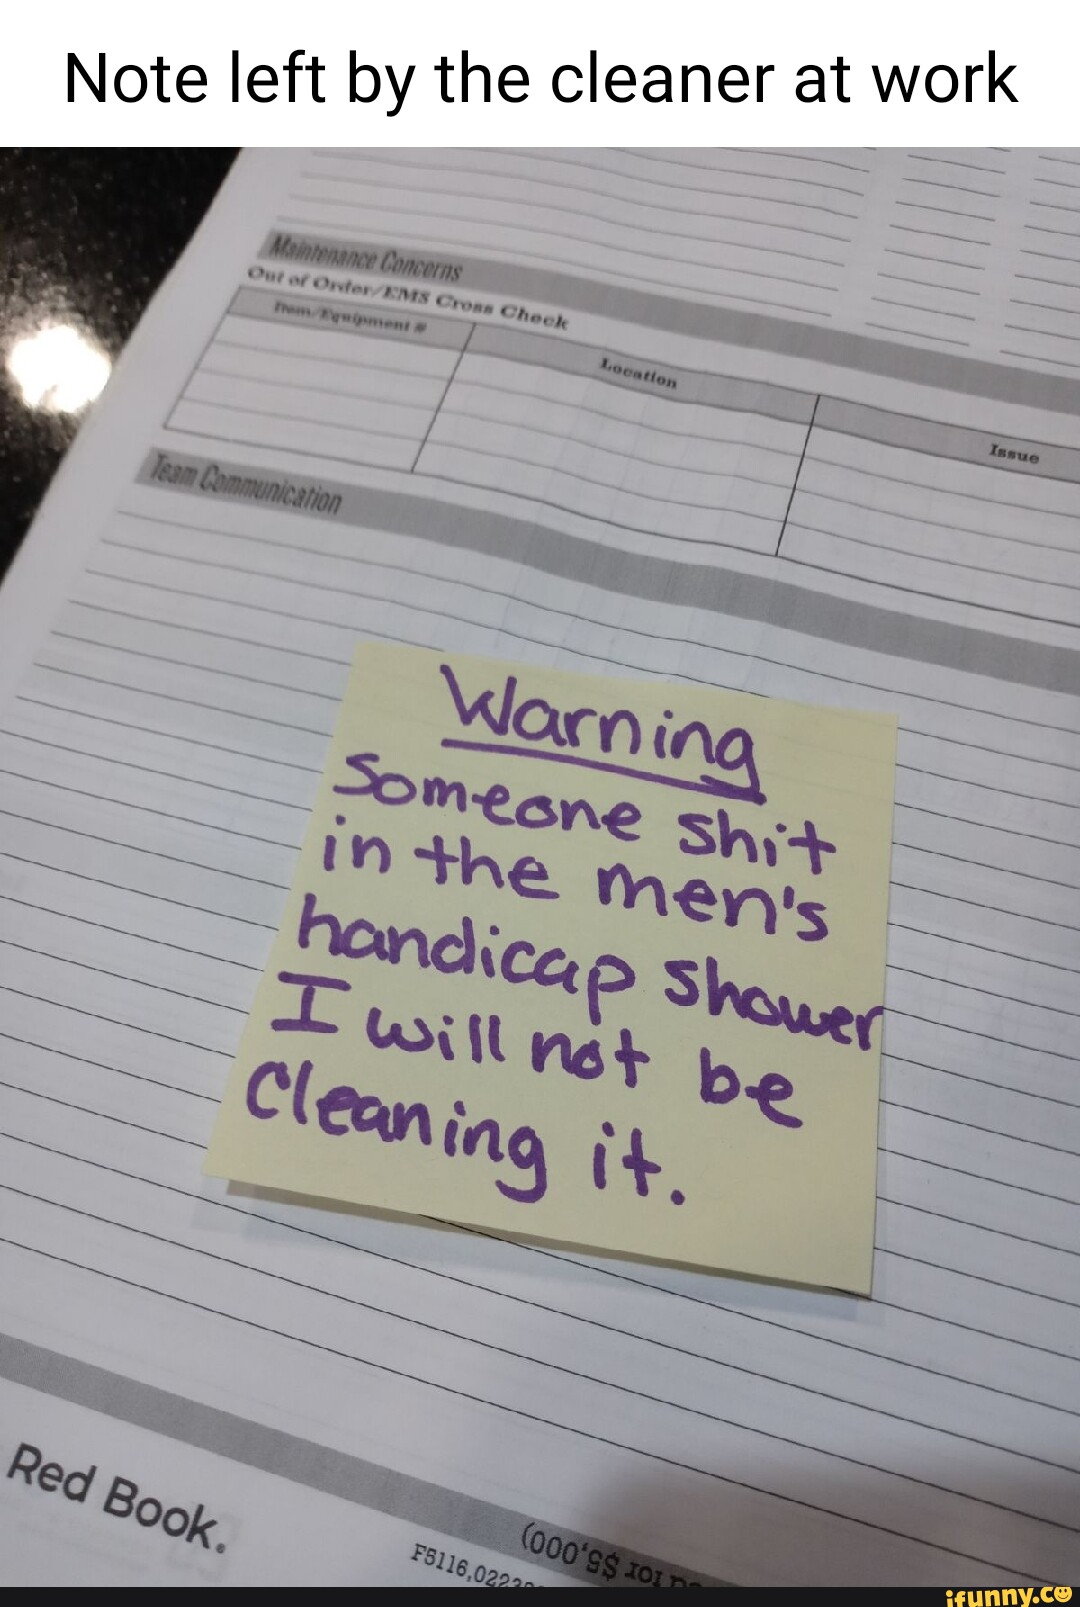 Note left by the cleaner at work
Maintenance Concerns
Out of Order/EMS Cross Check
Item/Equipment #
Location
Issue
Team Communication
Warning
Someone shit
in the men's
handicap shower
I will not be
Cleaning it.
Red Book.
F5116,022
for $5,000)
ifunny.co